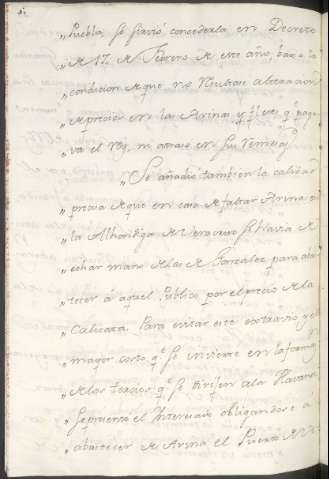 „ Puebla, se sirvió concederla en Decreto
„ de 17 de Febrero de este año, baxo la
„ condicion de que no hubiese alteracion
„ de precios en la Arina, y flete q.e paga
„ va el Rey, ni atraso en su remision
„ Se añadió tambien la calidad
„ precisa de que en caso de faltar Arina en
„ la Alhondiga de Veracruz se havia de
„ echar mano de las de Gonzalez para abas
„ tecer á aquel Publico por el precio de la
„ Calicata. Para evitar este extravio y el
„ mayor costo q.e se invierte en
„ de los tercios q.e se dirijen a la Havana
„ Se presentó el Interesado obligandose á
„ abastecer de Arina el Puerto de